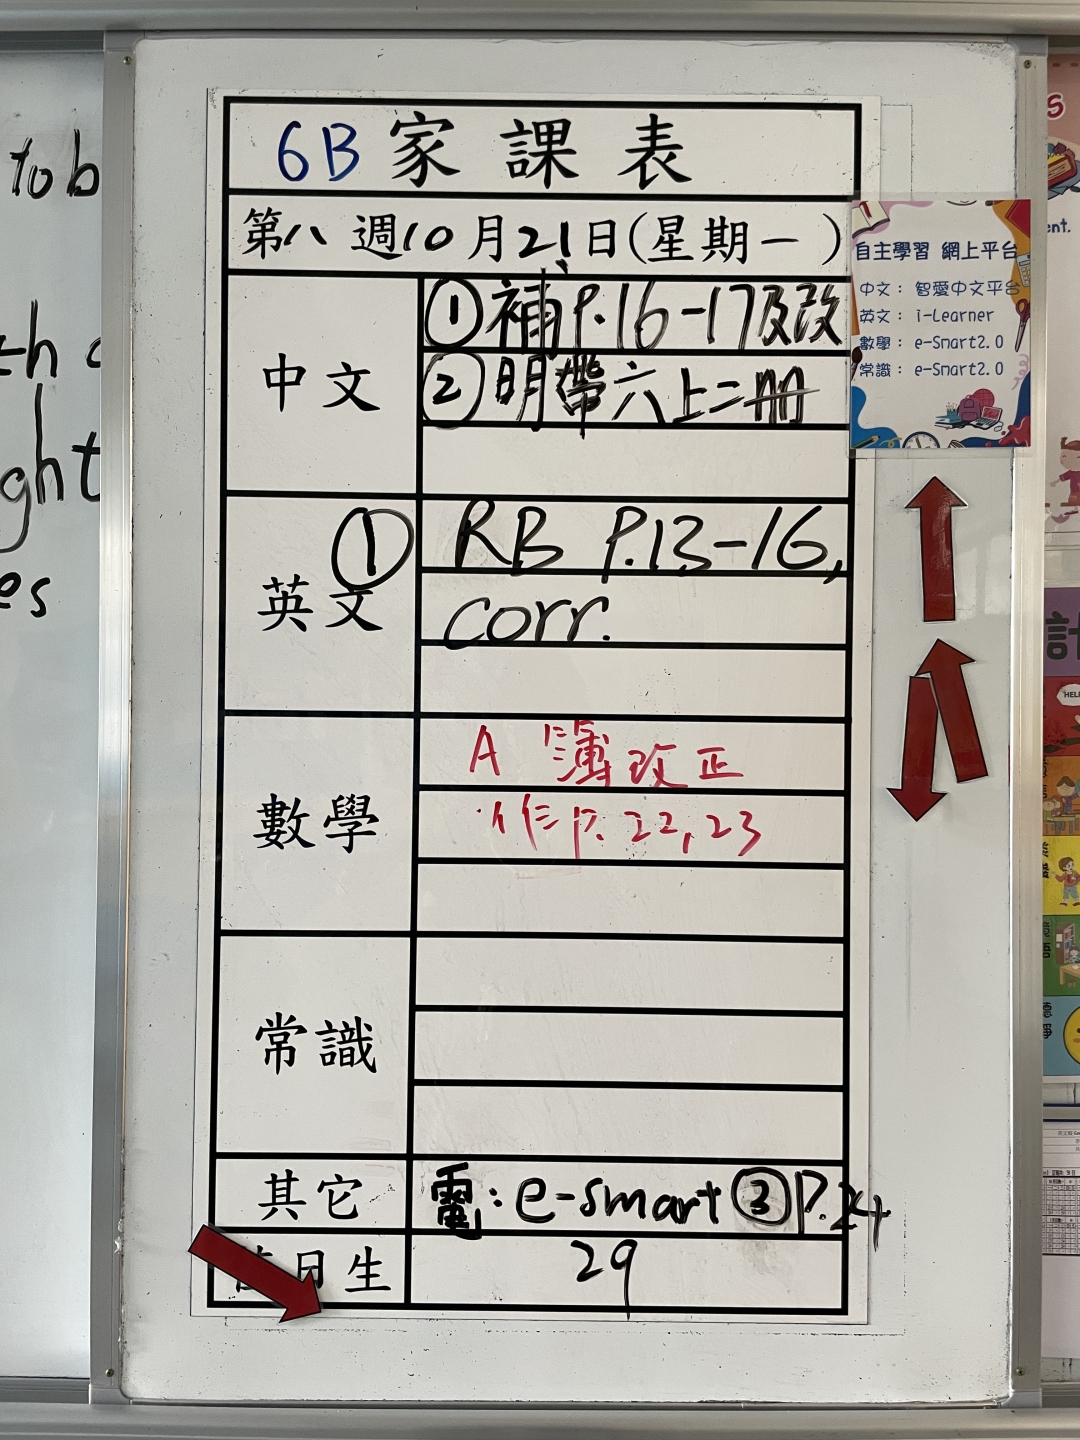 6B 家課表
第八週10月21日(星期一)
中文
①補P.16-17及改
②明帶六上二冊
英文
① RB P.13-16,
corr.
數學
A 簿改正
作P.22,23
常識
其它
電:e-smart ③P.24
日生
29
自主學習 網上平台
中文: 智愛中文平台
英文: i-Learner
數學: e-Smart2.0
常識: e-Smart2.0
to b
th
ght
es
ent.
HEL